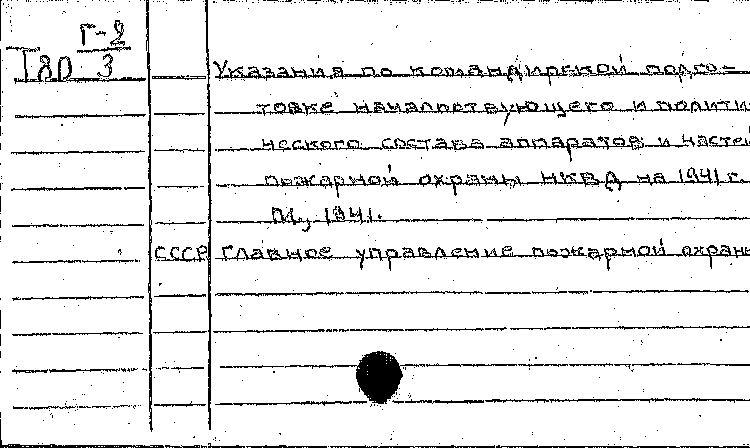 Г-2
Т80 3
Указания по командирской подго-
товке начальствующего и полити
ческого состава аппаратов и частей
пожарной охраны НКВД на 1941 г.
М., 1941.
СССР Главное управление пожарной охраны